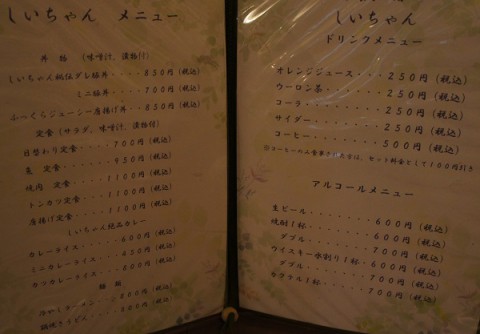 しいちゃん メニュー
丼 話 (味噌汁、漬物付)
しいちゃん秘伝ダレ豚丼・・・・850円(税込)
ミニ豚丼・・・・700円(税込)
ふっくらジューシー唐揚げ丼・・850円(税込)
定食(サラダ、味噌汁、漬物付)
日替わり定食・・・・・700円(税込)
魚 定食・・・・・・950円(税込)
焼肉 定食・・・・・1100円(税込)
トンカツ定食・・・・1100円(税込)
唐揚げ定食・・・・・1100円(税込)
しいちゃん絶品カレー
カレーライス・・・・・600円(税込)
ミニカレーライス・・・450円(税込)
カツカレーライス・・・800円(税込)
麺 類
800円(税込)
しいちゃん
ドリンクメニュー
オレンジジュース・・・250円(税込)
ウーロン茶・・・・・・250円(税込)
コーラ・・・・・・・・250円(税込)
サイダー・・・・・・・250円(税込)
コーヒー・・・・・・・500円(税込)
セット料金として100円引き
アルコールメニュー
生ビール・・・・・・・600円(税込)
焼酎1杯・・・・・・・600円(税込)
ダブル・・・・・・・700円(税込)
ウイスキー水割り1杯・600円(税込)
ダブル・・・・・・・700円(税込)
カクテル1杯・・・・・700円(税込)